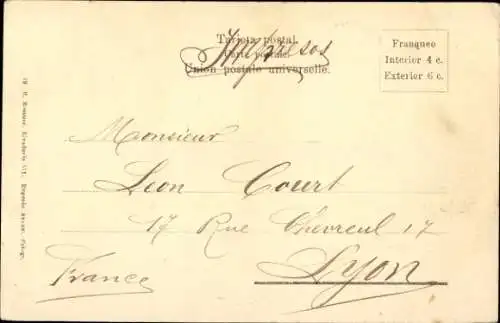 Tarjeta postal.
Impresos
Carte postale.
Union postale universelle.
Franqueo
Interior 4 c.
Exterior 6 c.
Monsieur
Leon Court
17 Rue Chevreul 17
Lyon
France